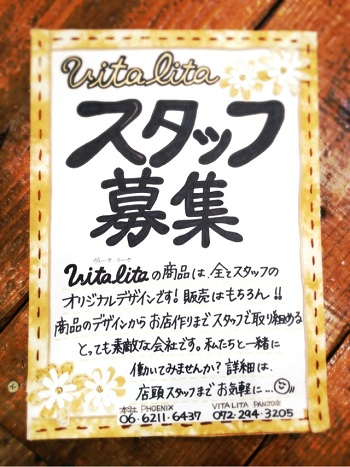 vitalita
スタッフ
募集
vitalitaの商品は、全てスタッフの
オリジナルデザインです！販売はもちろん!!
商品のデザインからお店作りまでスタッフで取り組める
とっても素敵な会社です。私たちと一緒に
働いてみませんか？詳細は、
店頭スタッフまでお気軽に…
本社 PHOENIX VITA LITA PANJO店
06・6211・6437 072・294・3205